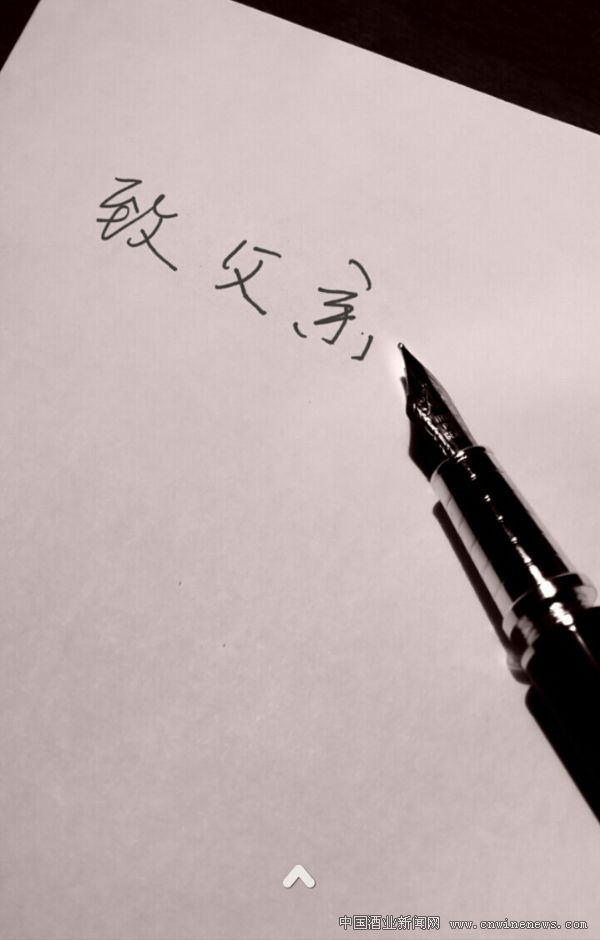 致父亲
中国酒业新闻网 www.cnwinenews.com